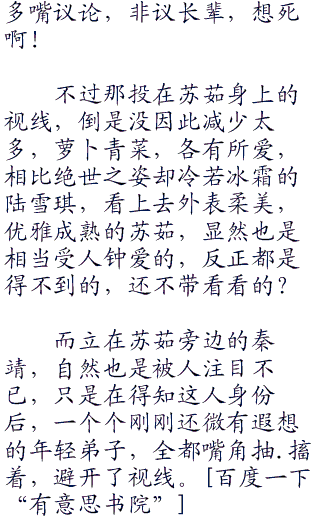 多嘴议论，非议长辈，想死
啊！
不过那投在苏茹身上的
视线，倒是没因此减少太
多，萝卜青菜，各有所爱，
相比绝世之姿却冷若冰霜的
陆雪琪，看上去外表柔美，
优雅成熟的苏茹，显然也是
相当受人钟爱的，反正都是
得不到的，还不带看看的？
而立在苏茹旁边的秦
靖，自然也是被人注目不
已，只是在得知这人身份
后，一个个刚刚还微有遐想
的年轻弟子，全都嘴角抽.搐
着，避开了视线。[百度一下
“有意思书院”]